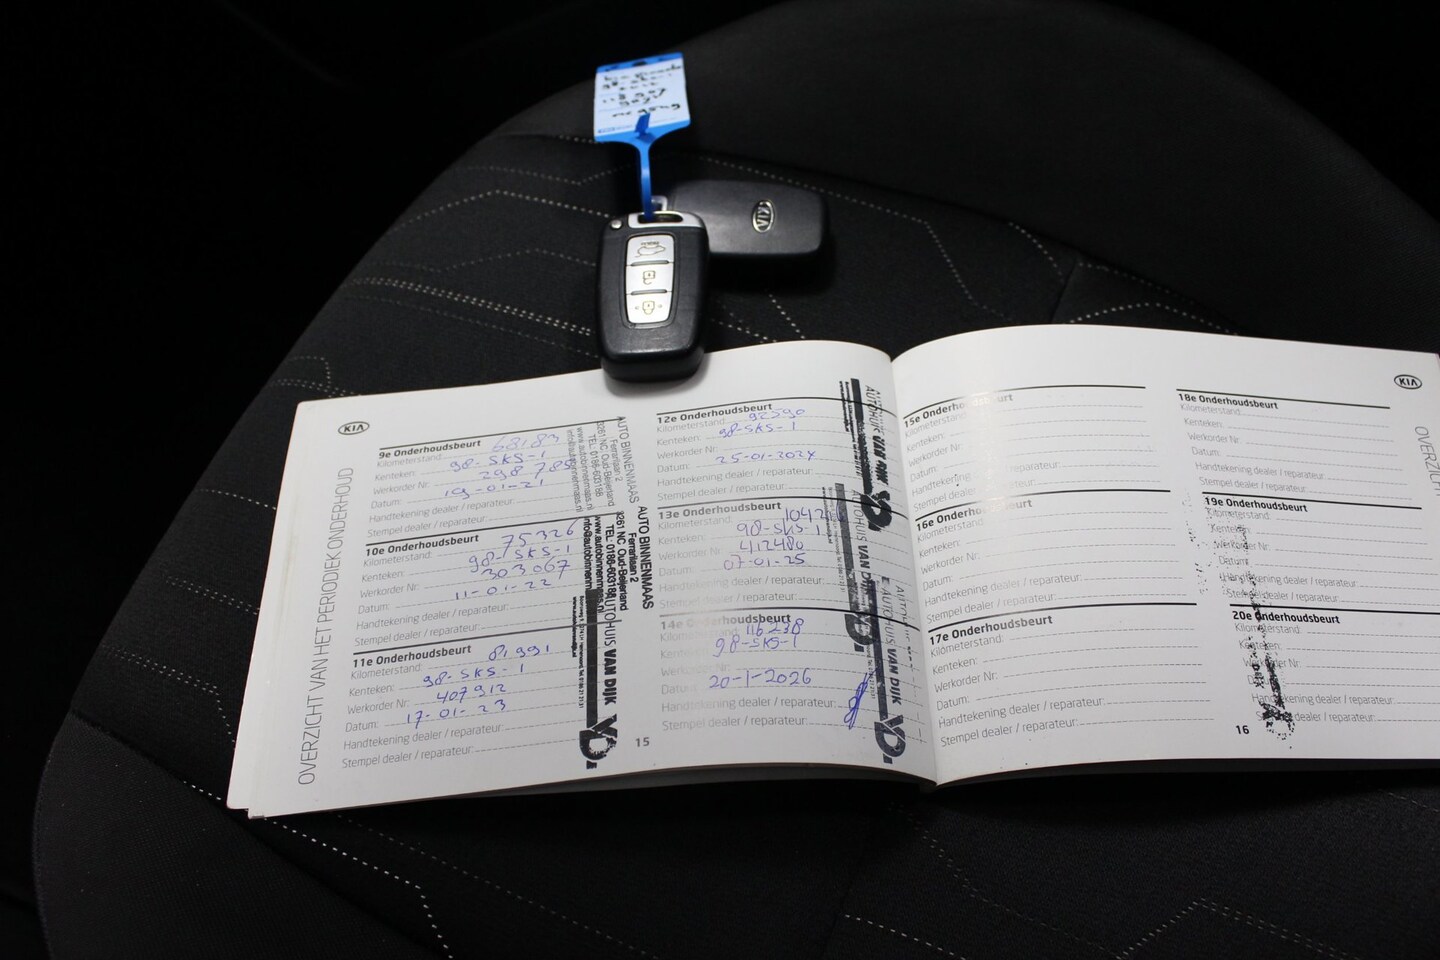 KIA
KIA
OVERZICHT VAN HET PERIODIEK ONDERHOUD
9e Onderhoudsbeurt
Kilometerstand: 68183
Kenteken: 98-SKS-1
Werkorder Nr: 298785
Datum: 19-01-21
Handtekening dealer / reparateur:
Stempel dealer / reparateur:
AUTO BINNENMAAS
Ferrarilaan 2
3261 NC Oud-Beijerland
TEL. 0186-603188
www.autobinnenmaas.nl
info@autobinnenmaas.nl
10e Onderhoudsbeurt
Kilometerstand: 75326
Kenteken: 98-SKS-1
Werkorder Nr: 303067
Datum: 11-01-22
Handtekening dealer / reparateur:
Stempel dealer / reparateur:
AUTO BINNENMAAS
Ferrarilaan 2
3261 NC Oud-Beijerland
TEL. 0186-603188
www.autobinnenmaas.nl
info@autobinnenmaas.nl
11e Onderhoudsbeurt
Kilometerstand: 81991
Kenteken: 98-SKS-1
Werkorder Nr: 407912
Datum: 17-01-23
Handtekening dealer / reparateur:
Stempel dealer / reparateur:
AUTOHUIS VAN DIJK
VD.
12e Onderhoudsbeurt
Kilometerstand: 92590
Kenteken: 98-SKS-1
Werkorder Nr:
Datum: 25-01-2024
Handtekening dealer / reparateur:
Stempel dealer / reparateur:
AUTOHUIS VAN DIJK
VD.
13e Onderhoudsbeurt
Kilometerstand:
Kenteken: 98-SKS-1
Werkorder Nr: 412480
Datum: 07-01-25
Handtekening dealer / reparateur:
Stempel dealer / reparateur:
AUTOHUIS VAN DIJK
VD.
14e Onderhoudsbeurt
Kilometerstand: 116238
Kenteken: 98-SKS-1
Werkorder Nr:
Datum: 20-1-2026
Handtekening dealer / reparateur:
Stempel dealer / reparateur:
AUTOHUIS VAN DIJK
VD.
15
15e Onderhoudsbeurt
Kilometerstand:
Kenteken:
Werkorder Nr:
Datum:
Handtekening dealer / reparateur:
Stempel dealer / reparateur:
16e Onderhoudsbeurt
Kilometerstand:
Kenteken:
Werkorder Nr:
Datum:
Handtekening dealer / reparateur:
Stempel dealer / reparateur:
17e Onderhoudsbeurt
Kilometerstand:
Kenteken:
Werkorder Nr:
Datum:
Handtekening dealer / reparateur:
Stempel dealer / reparateur:
KIA
18e Onderhoudsbeurt
Kilometerstand:
Kenteken:
Werkorder Nr:
Datum:
Handtekening dealer / reparateur:
Stempel dealer / reparateur:
19e Onderhoudsbeurt
Kilometerstand:
Kenteken:
Werkorder Nr:
Datum:
Handtekening dealer / reparateur:
Stempel dealer / reparateur:
20e Onderhoudsbeurt
Kilometerstand:
Kenteken:
Werkorder Nr:
Datum:
Handtekening dealer / reparateur:
Stempel dealer / reparateur:
16